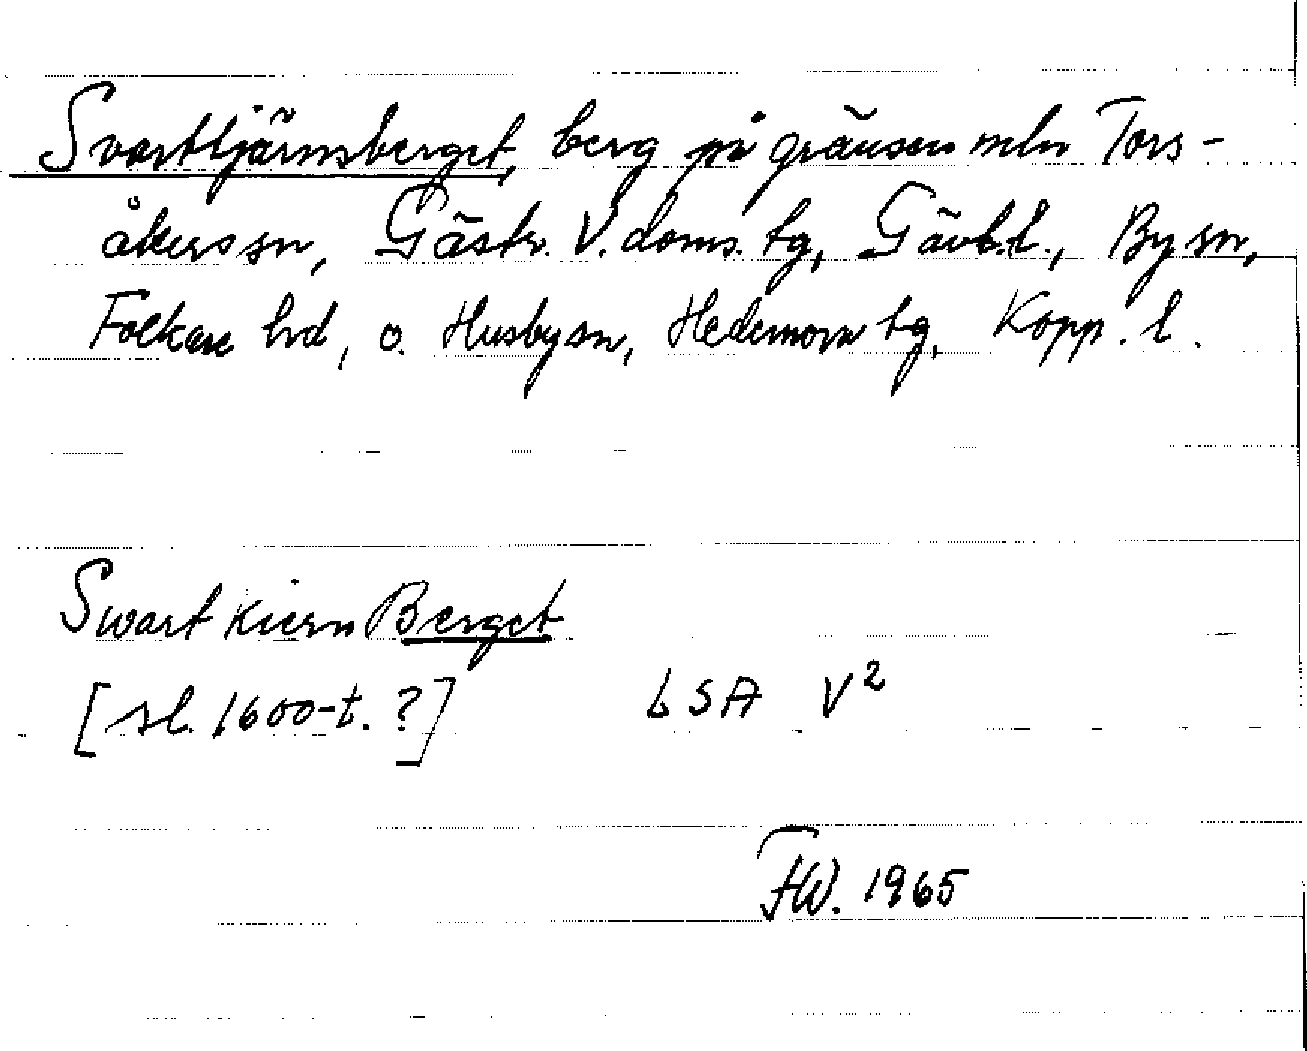 Svarttjärnsberget, berg på gränsen mln Tors-
åkers sn, Gästr. V. doms. tg, Gävleb. l., By sn,
Folkare hd, o. Husby sn, Hedemora tg, Kopp. l.
Swart Kiern Berget
[sl. 1600-t. ?] LSA V²
FW. 1965